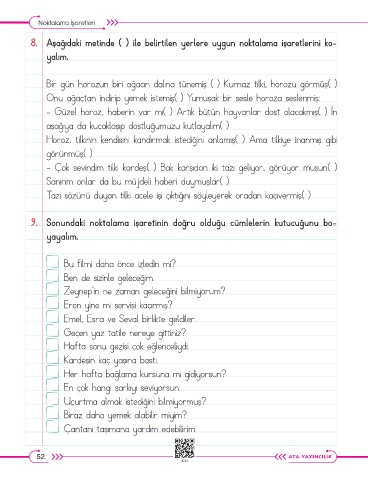 Noktalama İşaretleri
8. Aşağıdaki metinde ( ) ile belirtilen yerlere uygun noktalama işaretlerini ko-
yalım.
Bir gün horozun biri ağacın dalına tünemiş ( ) Kurnaz tilki, horozu görmüş( )
Onu ağaçtan indirip yemek istemiş( ) Yumuşak bir sesle horoza seslenmiş:
- Güzel horoz, haberin var mı( ) Artık bütün hayvanlar dost olacakmış( ) İn
aşağıya da kucaklaşıp dostluğumuzu kutlayalım( )
Horoz, tilkinin kendisini kandırmak istediğini anlamış( ) Ama tilkiye inanmış gibi
görünmüş( )
- Çok sevindim tilki kardeş( ) Bak karşıdan iki tazı geliyor, görüyor musun( )
Sanırım onlar da bu müjdeli haberi duymuşlar( )
Tazı sözünü duyan tilki acele işi çıktığını söyleyerek oradan kaçıvermiş( )
9. Sonundaki noktalama işaretinin doğru olduğu cümlelerin kutucuğunu bo-
yayalım.
Bu filmi daha önce izledin mi?
Ben de sizinle geleceğim.
Zeynep'in ne zaman geleceğini bilmiyorum?
Eren yine mi servisi kaçırmış?
Emel, Esra ve Seval birlikte geldiler.
Geçen yaz tatile nereye gittiniz?
Hafta sonu gezisi çok eğlenceliydi.
Kardeşin kaç yaşına bastı.
Her hafta bağlama kursuna mı gidiyorsun?
En çok hangi şarkıyı seviyorsun.
Uçurtma almak istediğini bilmiyormuş?
Biraz daha yemek alabilir miyim?
Çantanı taşımana yardım edebilirim.
52
ATA YAYINCILIK